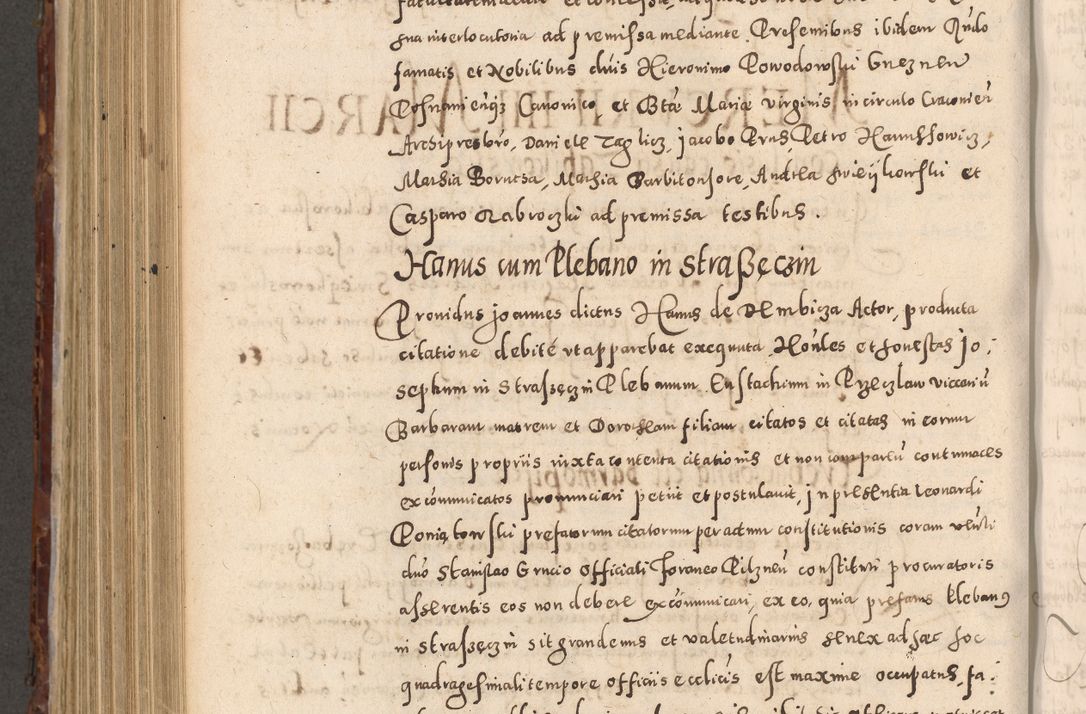 sua interlocutoria ad premissa mediante. Presentibus ibidem Nudo
famatis et Nobilibus dnis Hieronimo Powodowski Gneznen
Posnanienqz Canonico et Btae Mariae virginis in circulo Cracovien
Archipresbro, Daniele Taglicz, Jacobo Prus, Petro Hanussowicz,
Mathia Borntsa, Mathia Barbitonsore, Andrea et
Casparo Zabroczki ad premissa testibus.
Hanus cum Plebano in Straßęczin
Providus Joannes dictus Hanus de Dembicza Actor, producta
citatione debite ut apparebat exequuta, Honles et honestas Jo:
sephum in Straßęczin Plebanum, Eustachium in Przeczlaw viccariu
Barbaram matrem et Dorotheam filiam citatos et citatas in eorum
personis propriis iuxta contenta citationis et non comparen contumaces
excommunicatos pronunciari petiit et postulavit, in presentia Leonardi
Poniatowski prefatorum citatorum per actum constitutionis coram vnbli
dno Stanislao Grucio Officiali foraneo Pilznen constituti procuratoris
asserentis eos non debere excommunicari, ex eo, quia prefatus plebanus
in Straßęczin sit grandevus et valetudinarius senex ad haec hoc
quadragesimali tempore officiis ecclicis est maxime occupatus, fa: